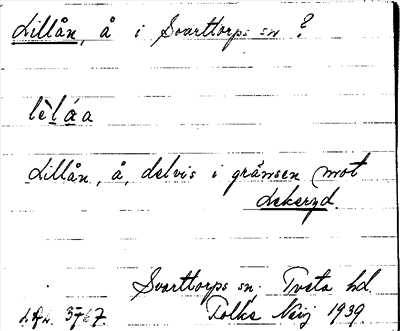 Lillån, å i Svarttorps sn?
lèláa
Lillån, å, delvis i gränsen mot
Lekeryd.
Svarttorps sn. Tveta hd.
3767. Folke 1939